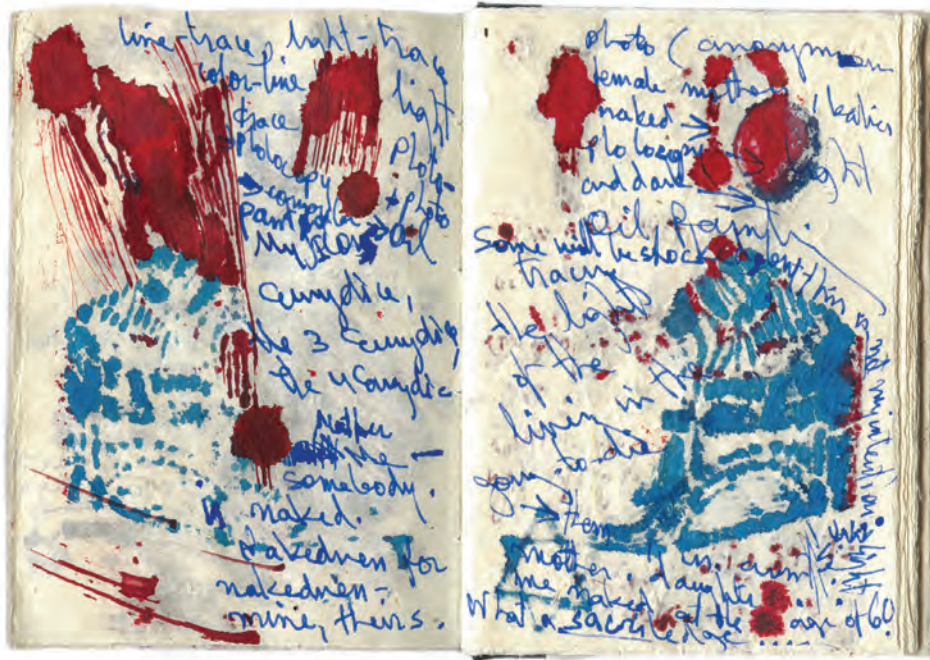 line-trace, light-trace
color-line
trace light
photocopy photo-
photo
painting
My oil
Eurydice,
the 3 Eurydice,
the Eurydice
Mother
me —
somebody.
naked.
Nakedness for
nakedness –
mine, theirs.
photo (anonymous
female mothers, babies
naked
photocopy light
and dark
oil painting
Some will be shocked
tracing
the light
of the
living in the
going-to-die
them
mother, daughter
me naked at the age of 60.
What a sacriledge ....
is not my intention